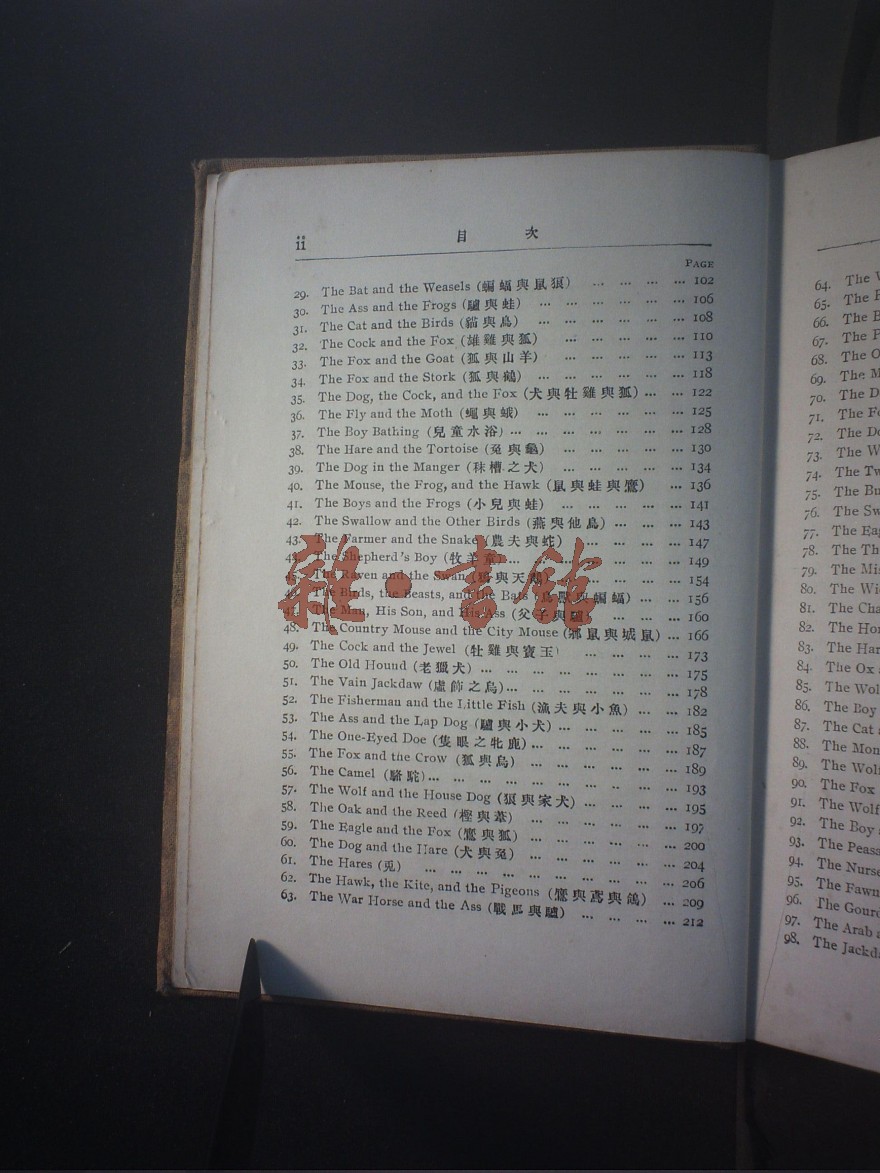 ii 目 次
PAGE
29. The Bat and the Weasels (蝙蝠與鼠狼) ... ... ... ... 102
30. The Ass and the Frogs (驢與蛙) ... ... ... ... ... ... 106
31. The Cat and the Birds (貓與鳥) ... ... ... ... ... ... 108
32. The Cock and the Fox (雄雞與狐) ... ... ... ... ... 110
33. The Fox and the Goat (狐與山羊) ... ... ... ... ... 113
34. The Fox and the Stork (狐與鶴) ... ... ... ... ... ... 118
35. The Dog, the Cock, and the Fox (犬與牡雞與狐) ... ... 122
36. The Fly and the Moth (蠅與蛾) ... ... ... ... ... ... 125
37. The Boy Bathing (兒童水浴) ... ... ... ... ... ... ... 128
38. The Hare and the Tortoise (兔與龜) ... ... ... ... ... 130
39. The Dog in the Manger (秣槽之犬) ... ... ... ... ... 134
40. The Mouse, the Frog, and the Hawk (鼠與蛙與鷹) ... 136
41. The Boys and the Frogs (小兒與蛙) ... ... ... ... ... 141
42. The Swallow and the Other Birds (燕與他鳥) ... ... ... 143
43. The Farmer and the Snake (農夫與蛇) ... ... ... ... 147
44. The Shepherd's Boy (牧羊童) ... ... ... ... ... ... ... 149
45. The Raven and the Swan (鴉與天鵝) ... ... ... ... ... 154
46. The Birds, the Beasts, and the Bats (鳥獸與蝙蝠) ... ... 156
47. The Man, His Son, and His Ass (父子與驢) ... ... ... 160
48. The Country Mouse and the City Mouse (鄉鼠與城鼠) ... 166
49. The Cock and the Jewel (牡雞與寶玉) ... ... ... ... 173
50. The Old Hound (老獵犬) ... ... ... ... ... ... ... ... 175
51. The Vain Jackdaw (虛飾之烏) ... ... ... ... ... ... ... 178
52. The Fisherman and the Little Fish (漁夫與小魚) ... ... 182
53. The Ass and the Lap Dog (驢與小犬) ... ... ... ... ... 185
54. The One-Eyed Doe (隻眼之牝鹿) ... ... ... ... ... ... 187
55. The Fox and the Crow (狐與烏) ... ... ... ... ... ... 189
56. The Camel (駱駝) ... ... ... ... ... ... ... ... ... 193
57. The Wolf and the House Dog (狼與家犬) ... ... ... ... 195
58. The Oak and the Reed (樫與葦) ... ... ... ... ... ... 197
59. The Eagle and the Fox (鷹與狐) ... ... ... ... ... ... 200
60. The Dog and the Hare (犬與兔) ... ... ... ... ... ... 204
61. The Hares (兎) ... ... ... ... ... ... ... ... ... 206
62. The Hawk, the Kite, and the Pigeons (鷹與鳶與鴿) ... 209
63. The War Horse and the Ass (戰馬與驢) ... ... ... ... 212
雜·書館
64. The
65. The
66. The
67. The
68. The
69. The
70. The
71. The
72. The
73. The
74. The
75. The
76. The
77. The
78. The
79. The
80. The
81. The
82. The
83. The
84. The Ox
85. The
86. The Boy
87. The Cat
88. The
89. The
90. The Fox
91. The Wolf
92. The Boy
93. The
94. The
95. The Fawn
96. The
97. The Arab
98. The